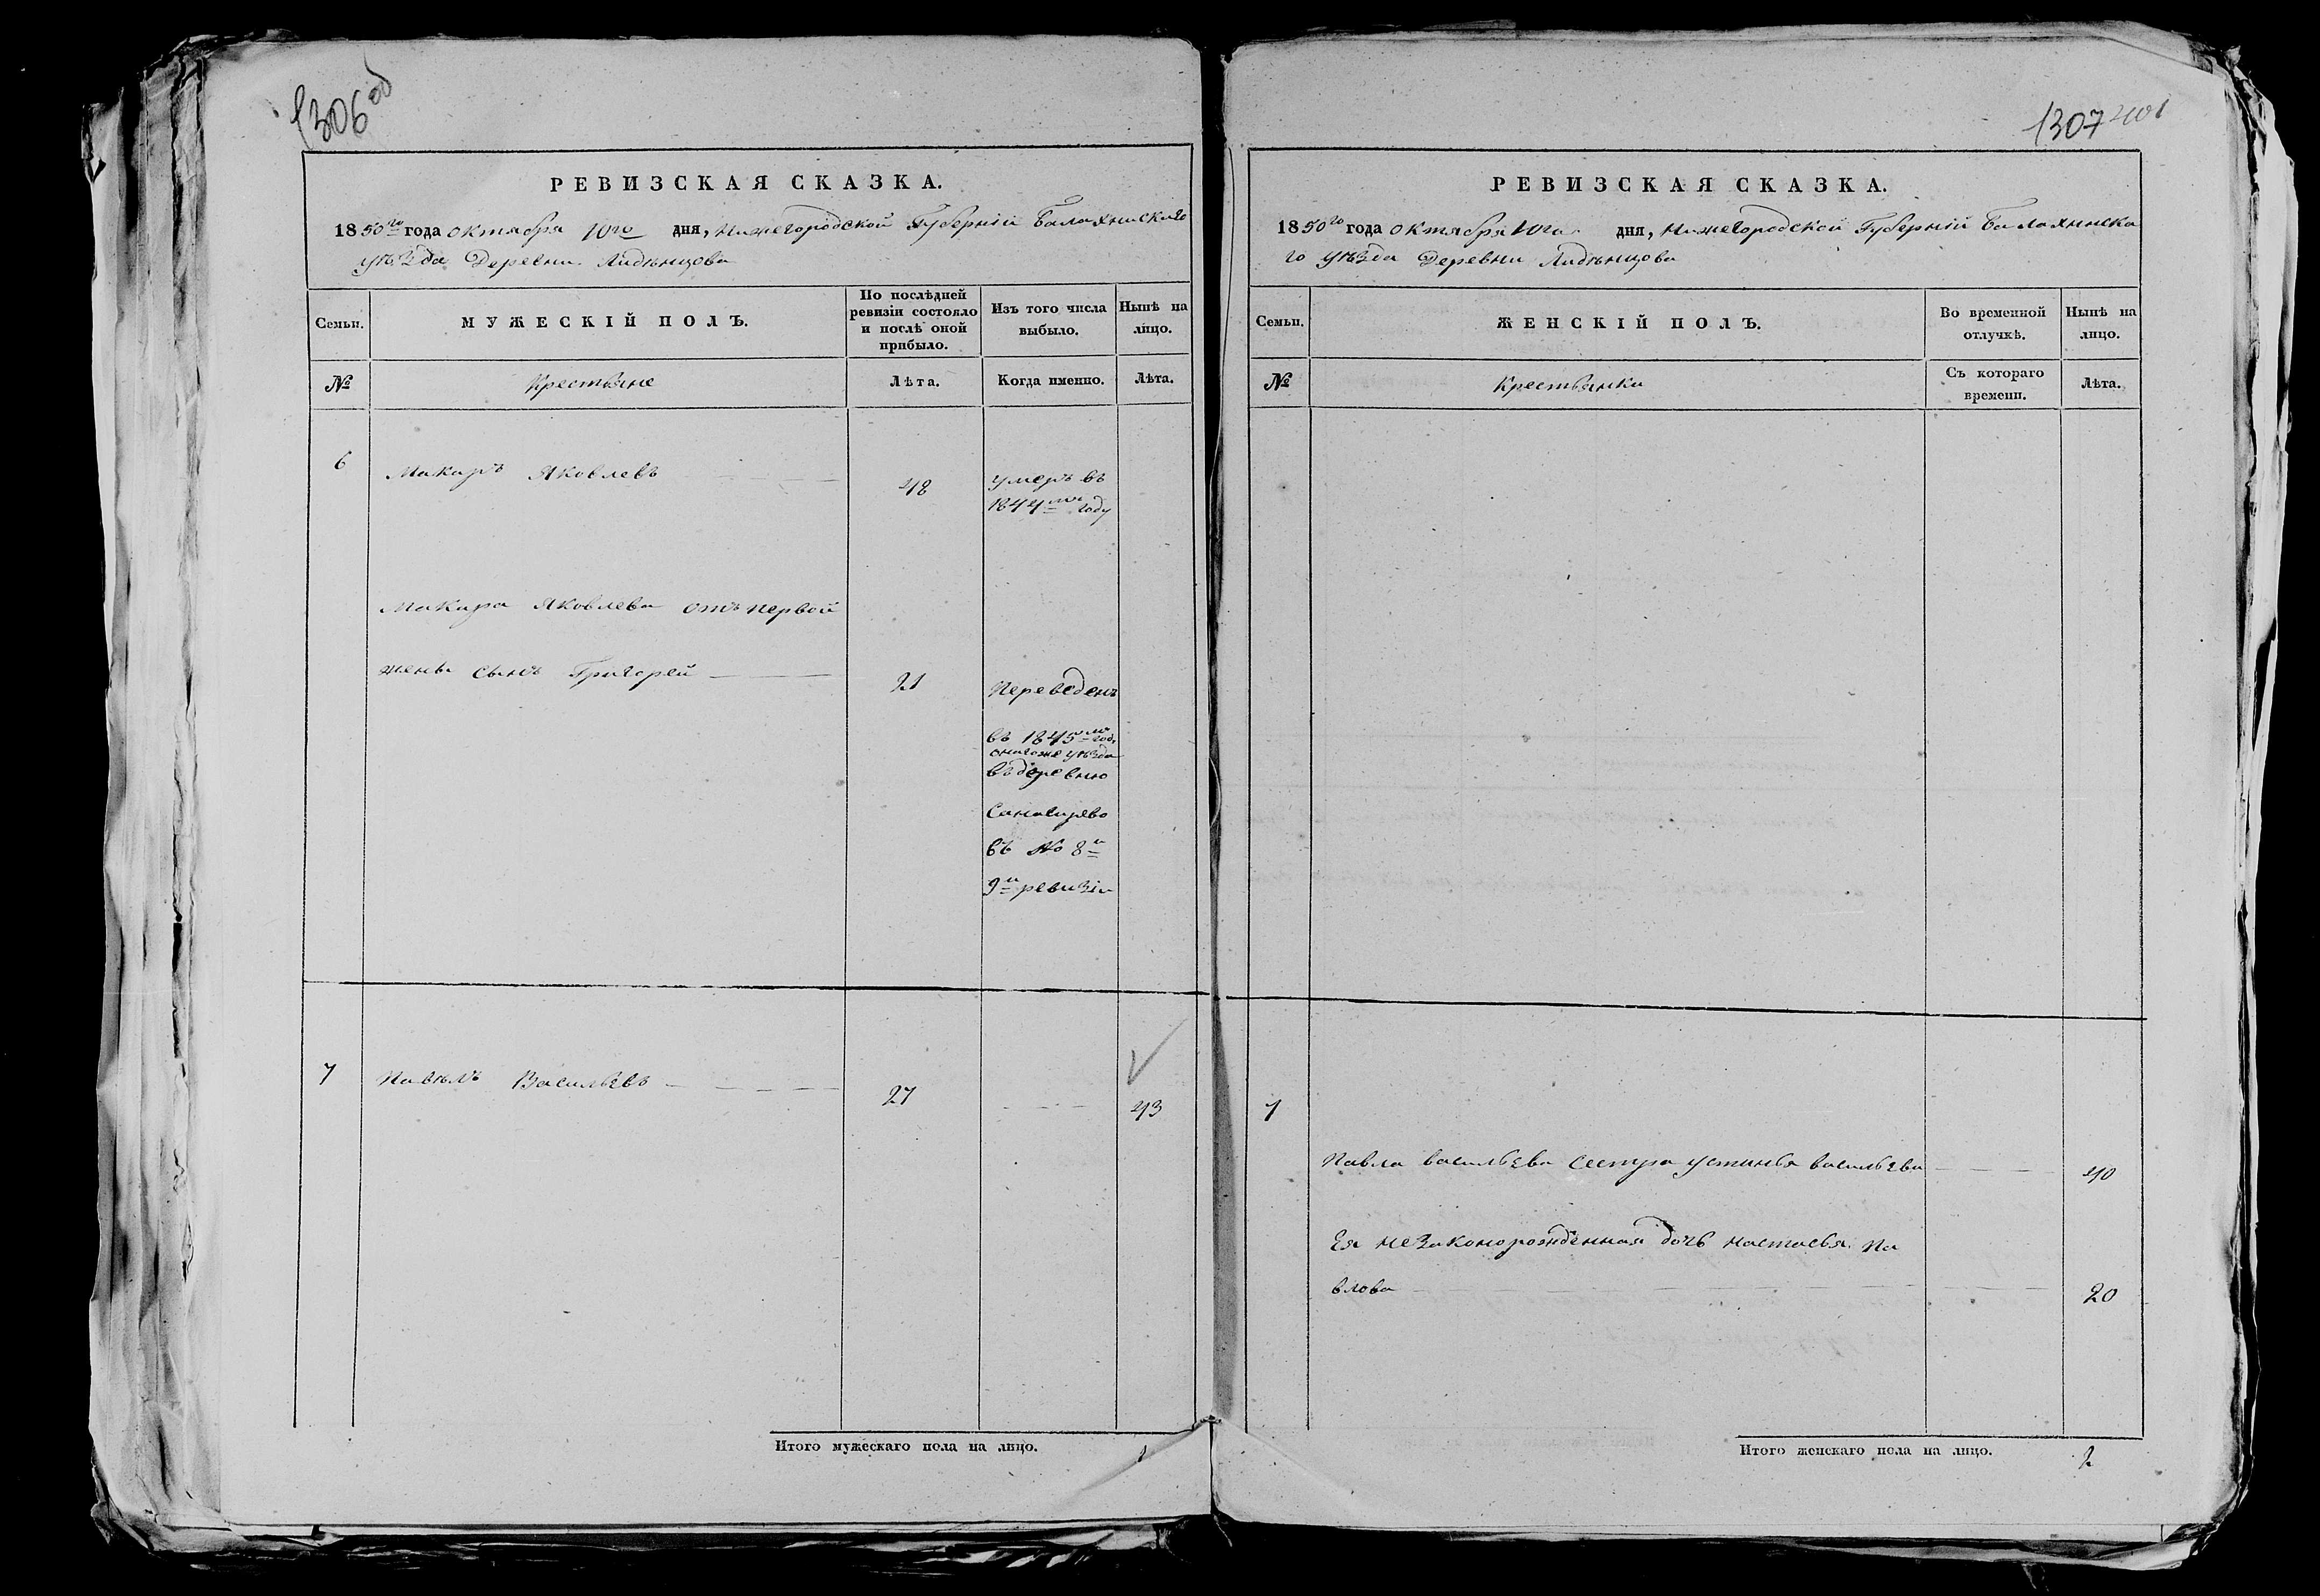 1306 об
РЕВИЗСКАЯ СКАЗКА.
1850го года октября 10го дня, Нижегородской Губерніи Балахнинскаго
уѣзда Деревни Лидѣнцова
Семьи.
МУЖЕСКІЙ ПОЛЪ.
По послѣдней ревизіи состояло и послѣ оной прибыло.
Изъ того числа выбыло.
Нынѣ на лицо.
№
Крестьяне
Лѣта.
Когда именно.
Лѣта.
6 Макаръ Яковлевъ 48 умеръ въ
1844мъ году
Макара Яковлева отъ первой
жены сынъ Григорей 21 Переведенъ
въ 1845мъ году
онагоже уѣзда
въ деревню
въ № 8й
9й ревизіи
7 Павѣлъ Васильевъ 27 43
Итого мужескаго пола на лицо. 1
1307 401
РЕВИЗСКАЯ СКАЗКА.
1850го года октября 10го дня, Нижегородской Губерніи Балахнинска
го уѣзда Деревни Лидѣнцова
Семьи.
ЖЕНСКІЙ ПОЛЪ.
Во временной отлучкѣ.
Нынѣ на лицо.
№
Крестьянки
Съ котораго времени.
Лѣта.
7
Павла васильева сестра устинья васильева 40
Ея незаконорожденная дочь настасья Па
влова 20
Итого женскаго пола на лицо. 2